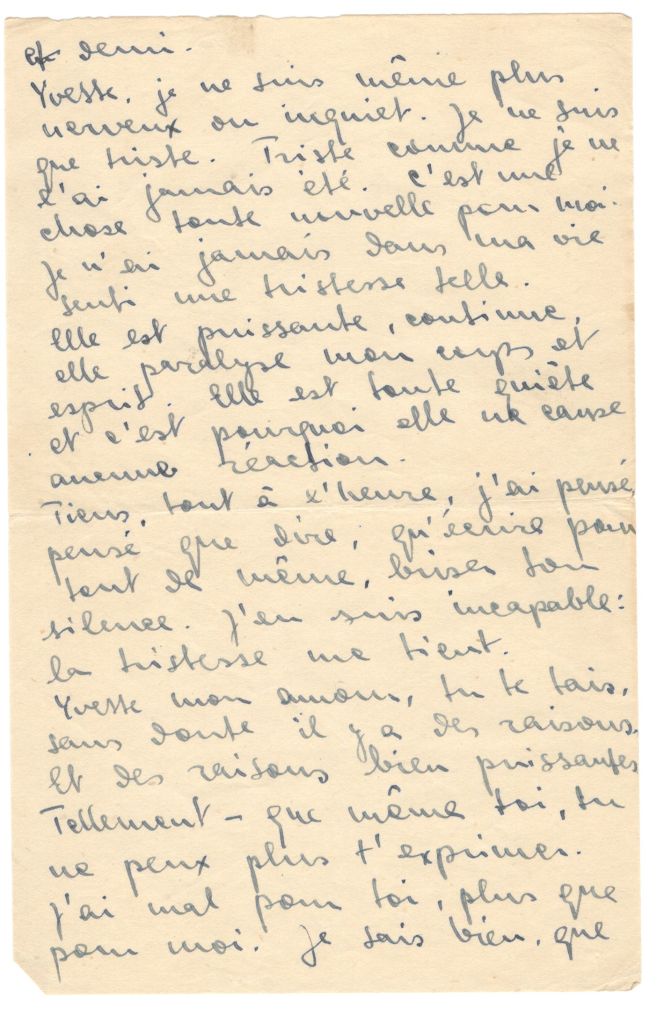 et demi.
Yvette, je ne suis même plus
nerveux ou inquiet. Je ne suis
que triste. Triste comme je ne
l'ai jamais été. C'est une
chose toute nouvelle pour moi.
Je n'ai jamais dans ma vie
senti une tristesse telle.
Elle est puissante, continue,
elle paralyse mon corps et
esprit. Elle est toute quiète
et c'est pourquoi elle ne cause
aucune réaction.
Tiens, tout à l'heure, j'ai pensé,
pensé que dire, qu'écrire pour
tout de même, briser ton
silence. J'en suis incapable:
la tristesse me tient.
Yvette mon amour, tu te tais,
sans doute il y a des raisons.
Et des raisons bien puissantes
Tellement - que même toi, tu
ne peux plus t'exprimer.
J'ai mal pour toi, plus que
pour moi. Je sais bien, que